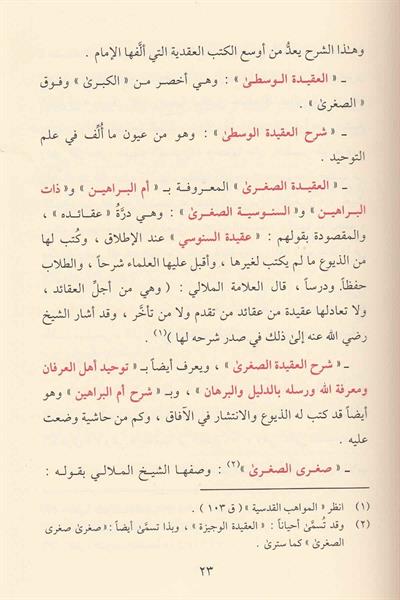 وهـٰذا الشرح يعدُّ من أوسع الكتب العقدية التي ألَّفها الإمام .
ـ « العقيدة الوسطىٰ » : وهي أخصر من « الكبرىٰ » وفوق
« الصغرىٰ » .
ـ « شرح العقيدة الوسطىٰ » : وهو من عيون ما أُلِّف في علم
التوحيد .
ـ « العقيدة الصغرىٰ » المعروفة بـ « أم البراهين » و« ذات
البراهين » و« السنوسية الصغرىٰ » : وهي درَّةُ « عقائده » ،
والمقصودة بقولهم : « عقيدة السنوسي » عند الإطلاق ، وكُتب لها
من الذيوع ما لم يكتب لغيرها ، وأقبل عليها العلماء شرحاً ، والطلاب
حفظاً ودرساً ، قال العلامة الملالي : ( وهي من أجلِّ العقائد ،
ولا تعادلها عقيدة من عقائد من تقدم ولا من تأخَّر ، وقد أشار الشيخ
رضي الله عنه إلىٰ ذلك في صدر شرحه لها )(١) .
ـ « شرح العقيدة الصغرىٰ » ، ويعرف أيضاً بـ « توحيد أهل العرفان
ومعرفة الله ورسله بالدليل والبرهان » ، وبـ « شرح أم البراهين » وهو
أيضاً قد كتب له الذيوع والانتشار في الآفاق ، وكم من حاشية وضعت
عليه .
ـ « صغرى الصغرىٰ »(٢) : وصفها الشيخ الملالي بقوله :
(١) انظر « المواهب القدسية » ( ق ١٠٣ ) .
(٢) وقد تُسمَّىٰ أحياناً : « العقيدة الوجيزة » ، وبذا تسمَّىٰ أيضاً : « صغرىٰ صغرى
الصغرىٰ » كما سترىٰ .
٢٣